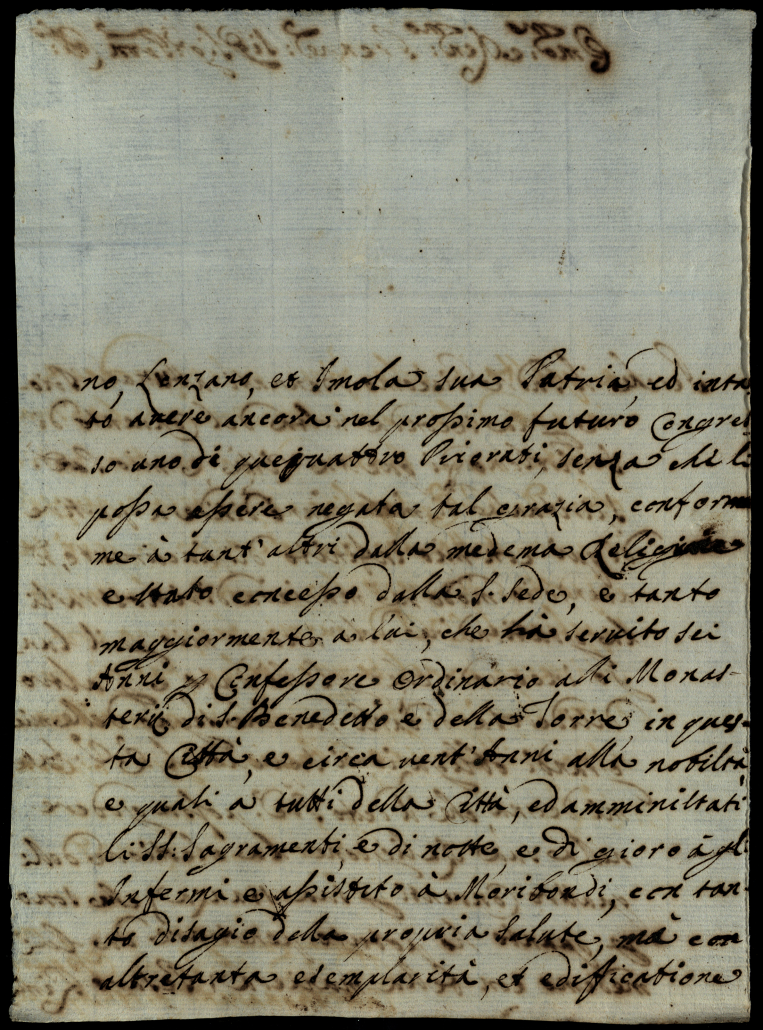 no, Lenzano, et Imola sua Patria, ed inta
to avere ancora nel prossimo futuro Congres
so uno di quei quattro Priorati, senza chè li
possa essere negata tal grazia, conform
me à tant' altri dalla medema Religione
e stato concesso dalla S. Sede, e tanto
maggiormente a lui, che hà servito sei
Anni p Confessore Ordinario alli Monas-
terij di S. Benedetto e della Torre in ques-
ta Città, e circa vent' Anni alla nobiltà
e quasi à tutti della Città, ed amministati
li SS: Sagramenti, e di notte, e di gioro à gl
Infermi e assistito à Moribondi, con tan-
to disagio della propria Salute, mà con
altretanta esemplarità, et edifficatione